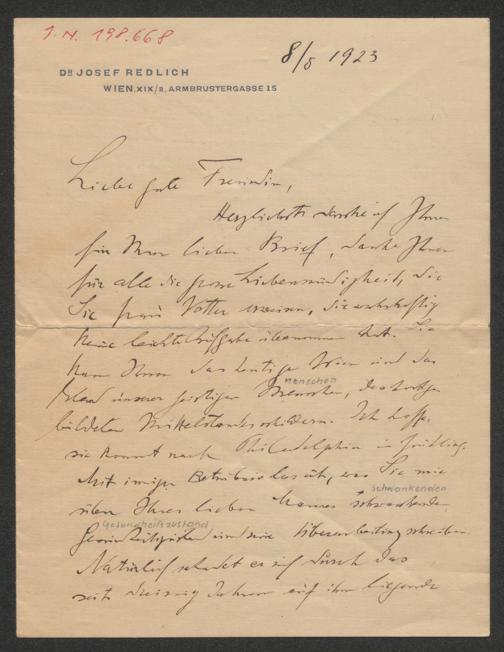 I.N. 198.668
8/5 1923
DR JOSEF REDLICH
WIEN, XIX/2, ARMBRUSTERGASSE 15
Liebe gute Freundin,
Herzlichst danke ich Ihnen
für Ihren lieben Brief, danke Ihnen
für alle die grosse Liebenswürdigkeit, die
Sie Frau erweisen, die wahrhaftig
keine leichte Aufgabe übernommen hat. Sie
kann Ihnen das heutige Wien und das
Menschen
Elend unserer geistigen Menschen, des
bildeten Mittelstandes schildern. Ich hoffe,
sie kommt nach Philadelphia im Frühling.
Mit inniger Betrübnis las ich, was Sie mir
schwankenden
über Ihres lieben Mannes schwankenden
Gesundheitszustand
und seine Überarbeitung schreiben.
Natürlich es sich durch das
seit dreissig Jahren auf ihm liegende